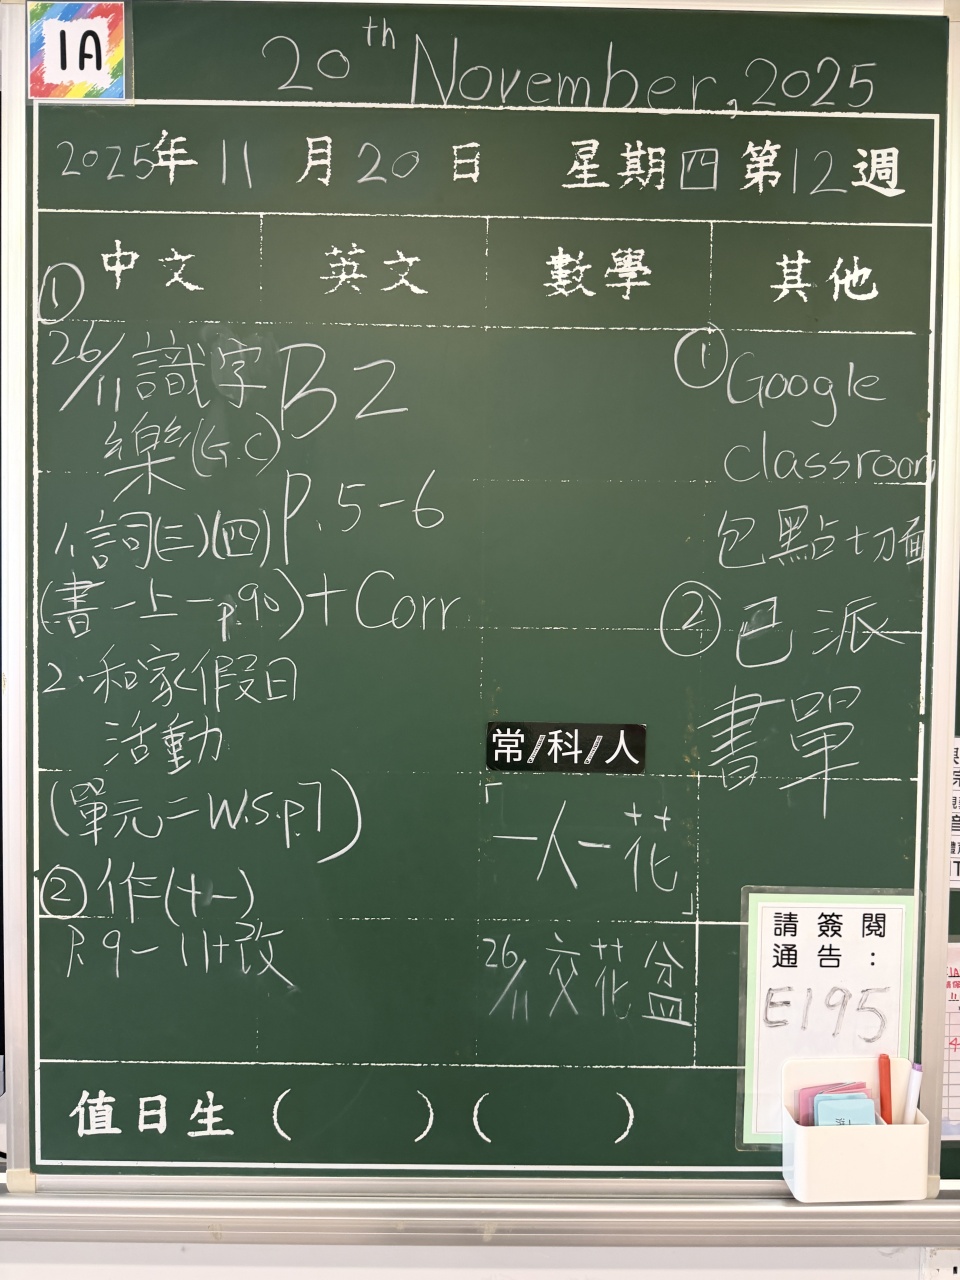 1A
20th November, 2025
2025年 11 月 20 日 星期四 第12週
中文 英文 數學 其他
①
26/11 識字
樂(G.C)
1.詞(三)(四)
(書一上一p.90)
2.和家假日
活動
(單元二 W.S.p.7)
② 作(十一)
P.9-11+改
B2
P.5-6
+Corr
常/科/人
「一人一花」
26/11 交花盆
① Google
classroom
包點切面
② 已派
書單
請簽閱
通告:
E195
值日生 ( ) ( )